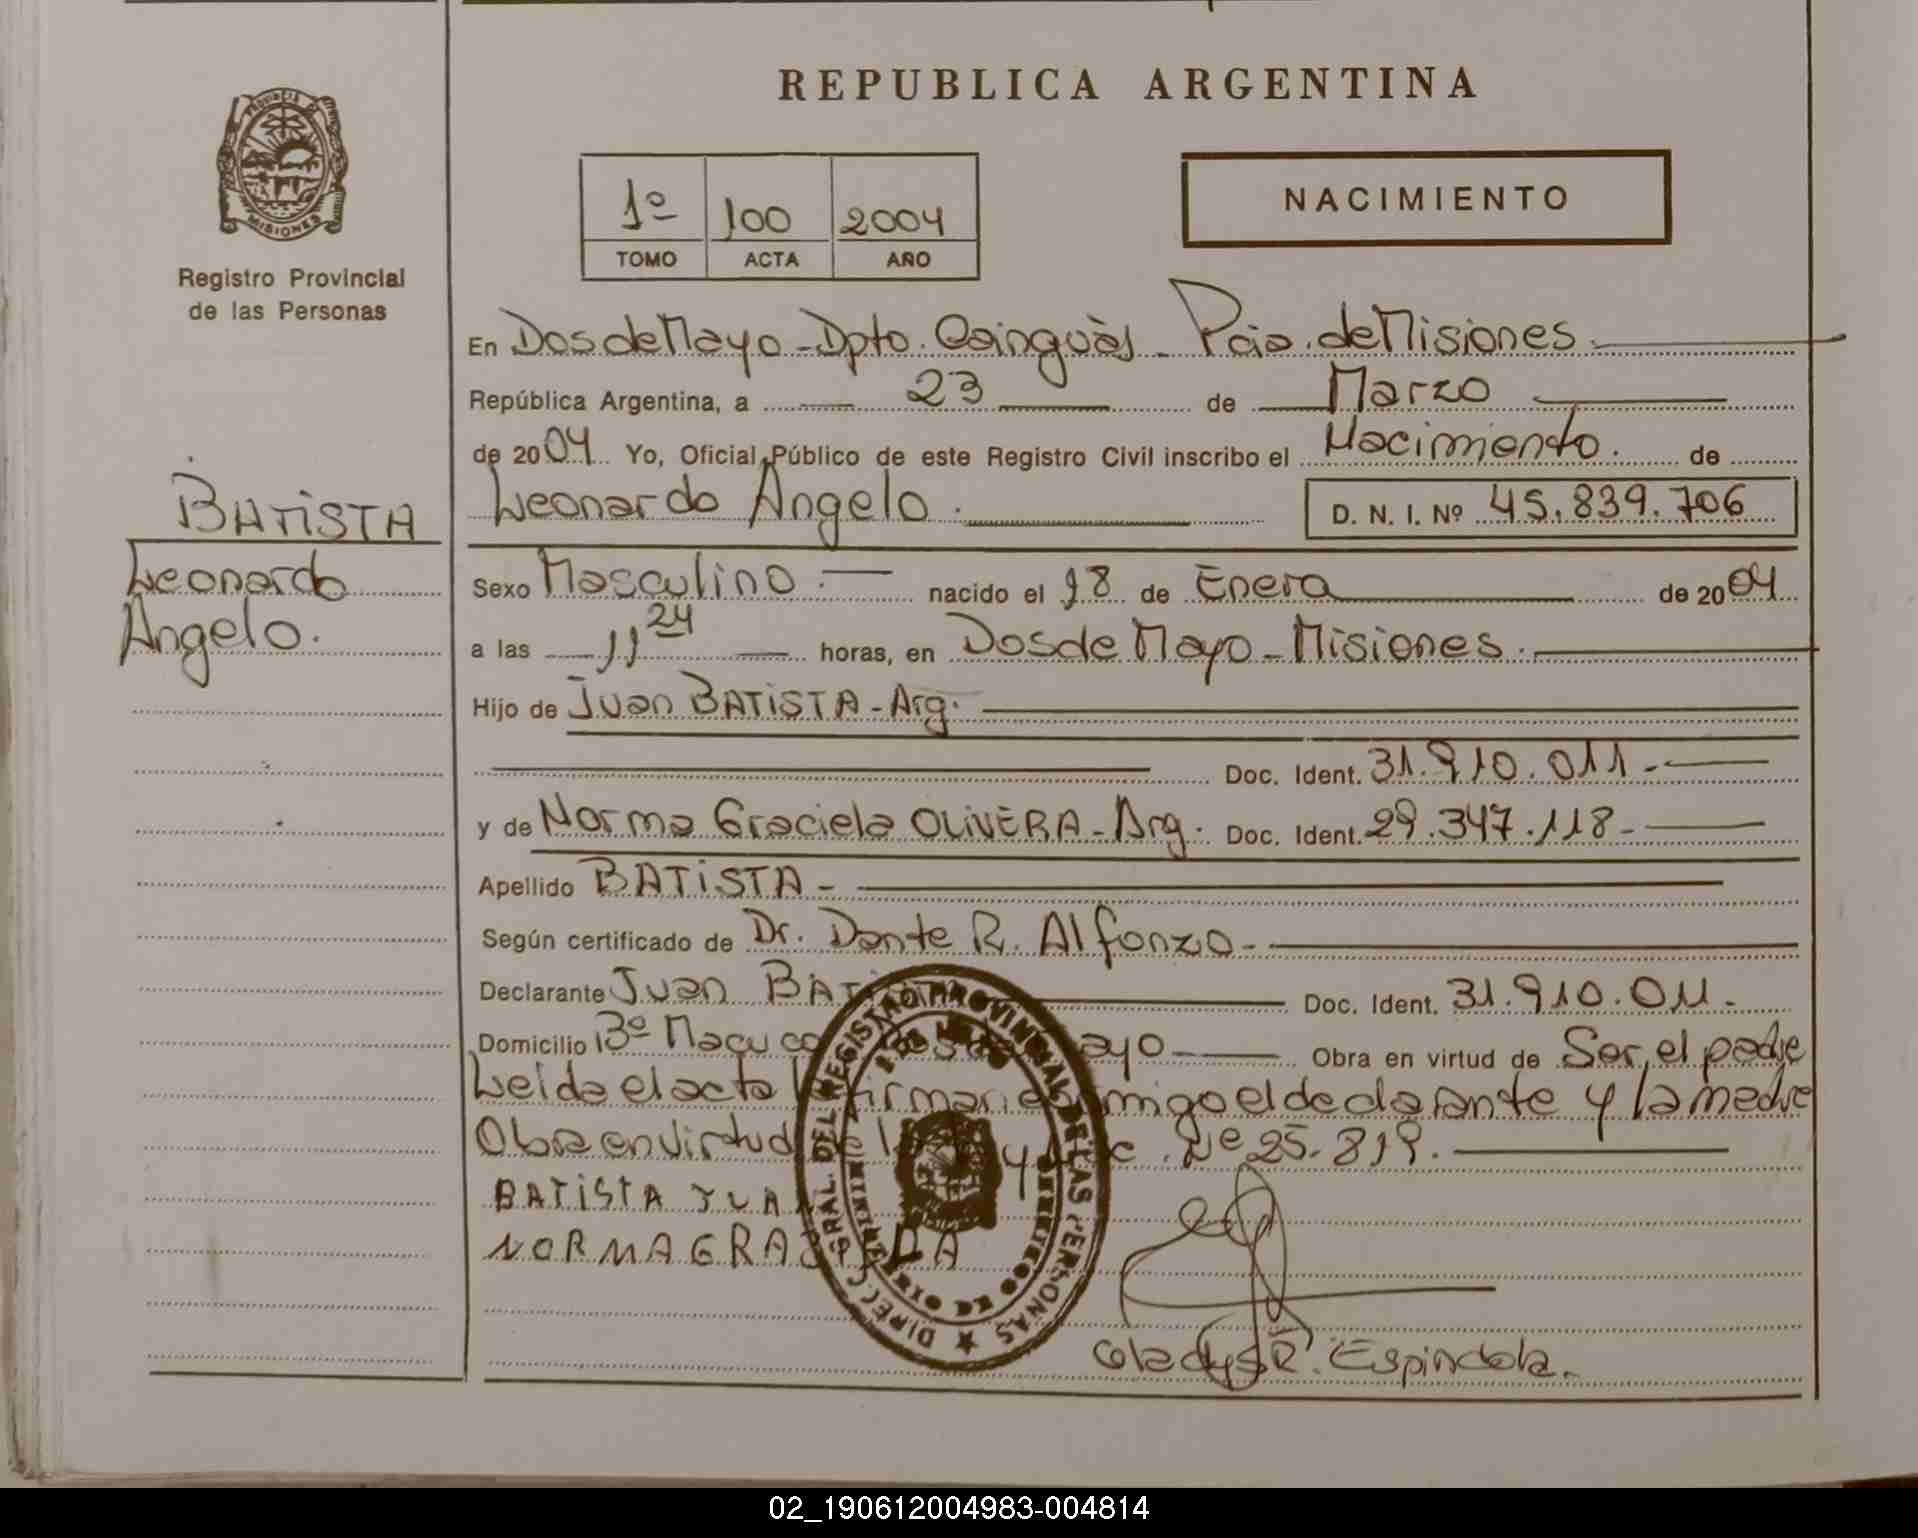 REPUBLICA ARGENTINA
PROVINCIA DE
MISIONES
Registro Provincial
de las Personas
1º 100 2004
TOMO ACTA AÑO
NACIMIENTO
En Dos de Mayo - Dpto. Cainguàs - Pcia. de Misiones.
República Argentina, a 23 de Marzo
de 2004 Yo, Oficial Público de este Registro Civil inscribo el Nacimiento. de
Leonardo Angelo. D. N. I. Nº 45.839.706
BATiSTA
Leonardo
Angelo.
Sexo Masculino. nacido el 18 de Enero de 2004
a las 11 24 horas, en Dos de Mayo - Misiones.
Hijo de Juan BATiSTA - Arg.
Doc. Ident. 31.910.011.-
y de Norma Graciela OLiVERA - Arg. Doc. Ident. 29.347.118-
Apellido BATiSTA -
Según certificado de Dr. Dante R. Alfonzo-
Declarante Juan Doc. Ident. 31.910.011.-
Domicilio Bº Obra en virtud de Ser el padre
Leida el acta el declarante y la madre
Obra en virtud Nº 25.819.
BATiSTA JUAN
NORMA
DIREC. GRAL. DEL REGISTRO PROVINCIAL DE LAS PERSONAS
Gladys R. Espindola.
02_190612004983-004814